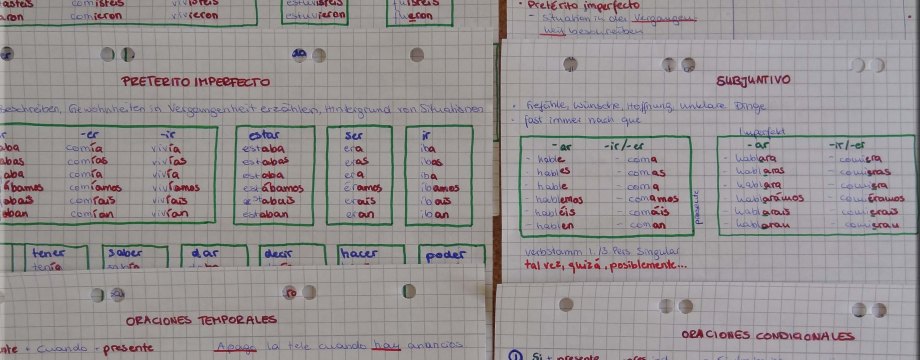 asteis comisteis vivisteis estuvisteis fuisteis
aron comieron vivieron estuvieron fueron
Pretérito imperfecto
- Situation in der Vergangen.
weil beschreiben
PRETERITO IMPERFECTO
beschreiben, Gewohnheiten in Vergangenheit erzählen, Hintergrund von Situationen
-er -ir estar ser ir
aba comía vivía estaba era iba
abas comías vivías estabas eras ibas
aba comía vivía estaba era iba
ábamos comíamos vivíamos estábamos éramos íbamos
abais comíais vivíais estabais erais ibais
aban comían vivían estaban eran iban
tener saber dar decir hacer poder
tenía sabía
ORACIONES TEMPORALES
Cuando + presente Apago la tele cuando hay anuncios
SUBJUNTIVO
· Gefühle, Wünsche, Hoffnung, unklare Dinge
· fast immer nach que
Imperfekt
-ar -ir/-er -ar -ir/-er
- hable - coma - hablara - comiera
- hables - comas - hablaras - comieras
- hable - coma - hablara - comiera
- hablemos - comamos - habláramos - comiéramos
- habléis - comáis - hablarais - comierais
- hablen - coman - hablaran - comieran
Präsens
Verbstamm 1./3. Pers. Singular
tal vez, quizá, posiblemente...
ORACIONES CONDICIONALES
① Si + presente